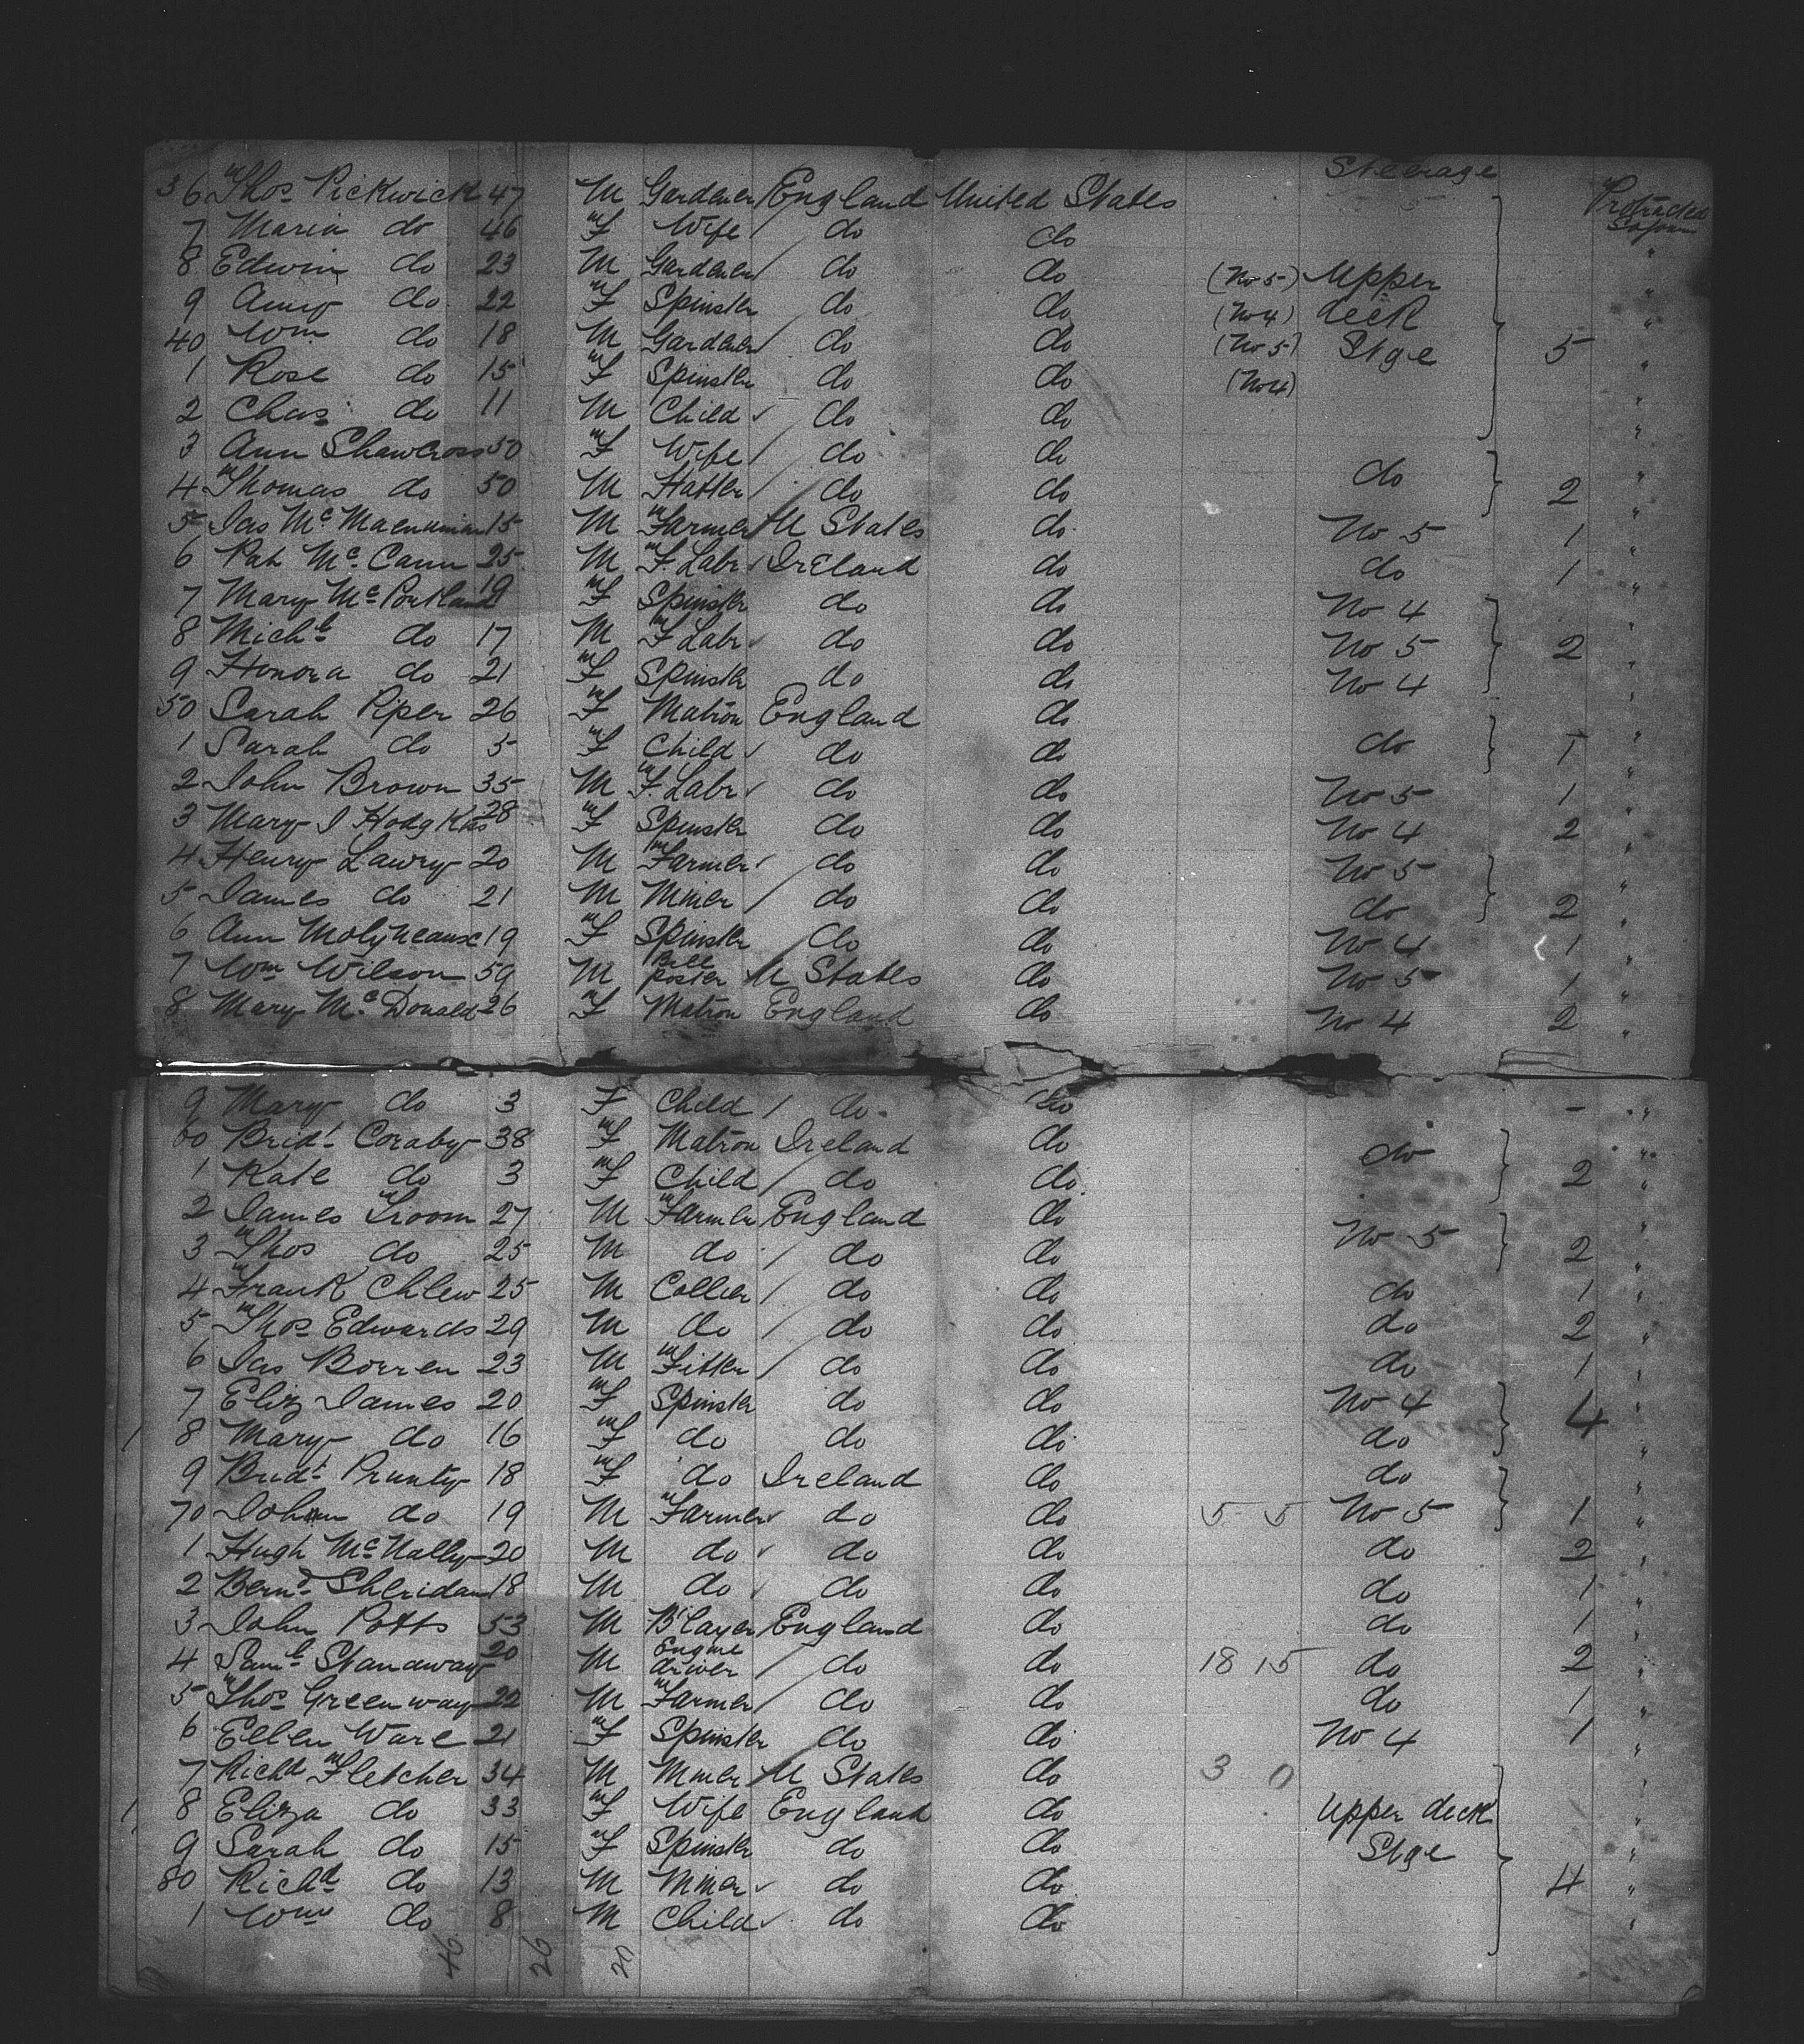 Steerage
36 Thos Pickwick 47 M Gardener England United States Protracted Sojourn
7 Maria do 46 F Wife / do do "
8 Edwin do 23 M Gardener / do do (No 5) Upper "
9 Amy do 22 F Spinster do do (No 4) deck "
40 Wm do 18 M Gardener / do do (No 5) Stge 5 "
1 Rose do 15 F Spinster do do (No 4) "
2 Chas do 11 M Child do do "
3 Ann Shawcross 50 F Wife / do do "
4 Thomas do 50 M Hatter / do do do 2 "
5 Jas Mc 15 M Farmer U States do No 5 1 "
6 Pat McCann 25 M F. Labr Ireland do do 1 "
7 Mary McPortland 19 F Spinster do do No 4 "
8 Michl do 17 M F Labr do do No 5 2 "
9 Honora do 21 F Spinster do do No 4 "
50 Sarah Piper 26 F Matron England do "
1 Sarah do 5 F Child do do do 1 "
2 John Brown 35 M F. Labr do do No 5 1 "
3 Mary J Hodgkiss 28 F Spinster do do No 4 2 "
4 Henry Lawry 20 M Farmer do do No 5 "
5 James do 21 M Miner / do do do 2 "
6 Ann Molyneaux 19 F Spinster do do No 4 1 "
7 Wm Wilson 59 M Bill poster U States do No 5 1 "
8 Mary McDonald 26 F Matron England do No 4 2 "
9 Mary do 3 F Child / do do - "
60 Bridt Coraby 38 F Matron Ireland do do "
1 Kate do 3 F Child / do do 2 "
2 James Groom 27 M Farmer England do No 5 "
3 Thos do 25 M do / do do 2 "
4 Frank Chlew 25 M Collier / do do do 1 "
5 Thos Edwards 29 M do / do do do 2 "
6 Jas Borren 23 M Fitter / do do do 1 "
7 Eliz James 20 F Spinster do do No 4 4 "
8 Mary do 16 F do do do do "
9 Bridt Prunty 18 F do Ireland do do "
70 John do 19 M Farmer do do 5 5 No 5 1 "
1 Hugh McNally 20 M do do do do 2 "
2 Bernd Sheridan 18 M do do do do 1 "
3 John Potts 53 M B'layer England do do 1 "
4 Saml Stanaway 20 M Engine driver / do do 18 15 do 2 "
5 Thos Greenway 22 M Farmer / do do do 1 "
6 Ellen Ware 21 F Spinster do do No 4 1 "
7 Richd Fletcher 34 M Miner U States do 3 0 "
8 Eliza do 33 F Wife England do Upper deck "
9 Sarah do 15 F Spinster do do Stge "
80 Richd do 13 M Miner do do 4 "
1 Wm do 8 M Child do do "
46 26 20